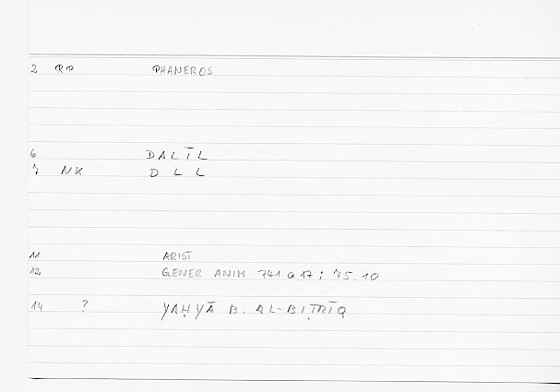 2 RP PHANEROS
6 DALĪL
7 NK D L L
11 ARIST
12 GENER ANIM 741 a 17 ; 75.10
14 ? YAḤYĀ B. AL-BIṬRĪQ